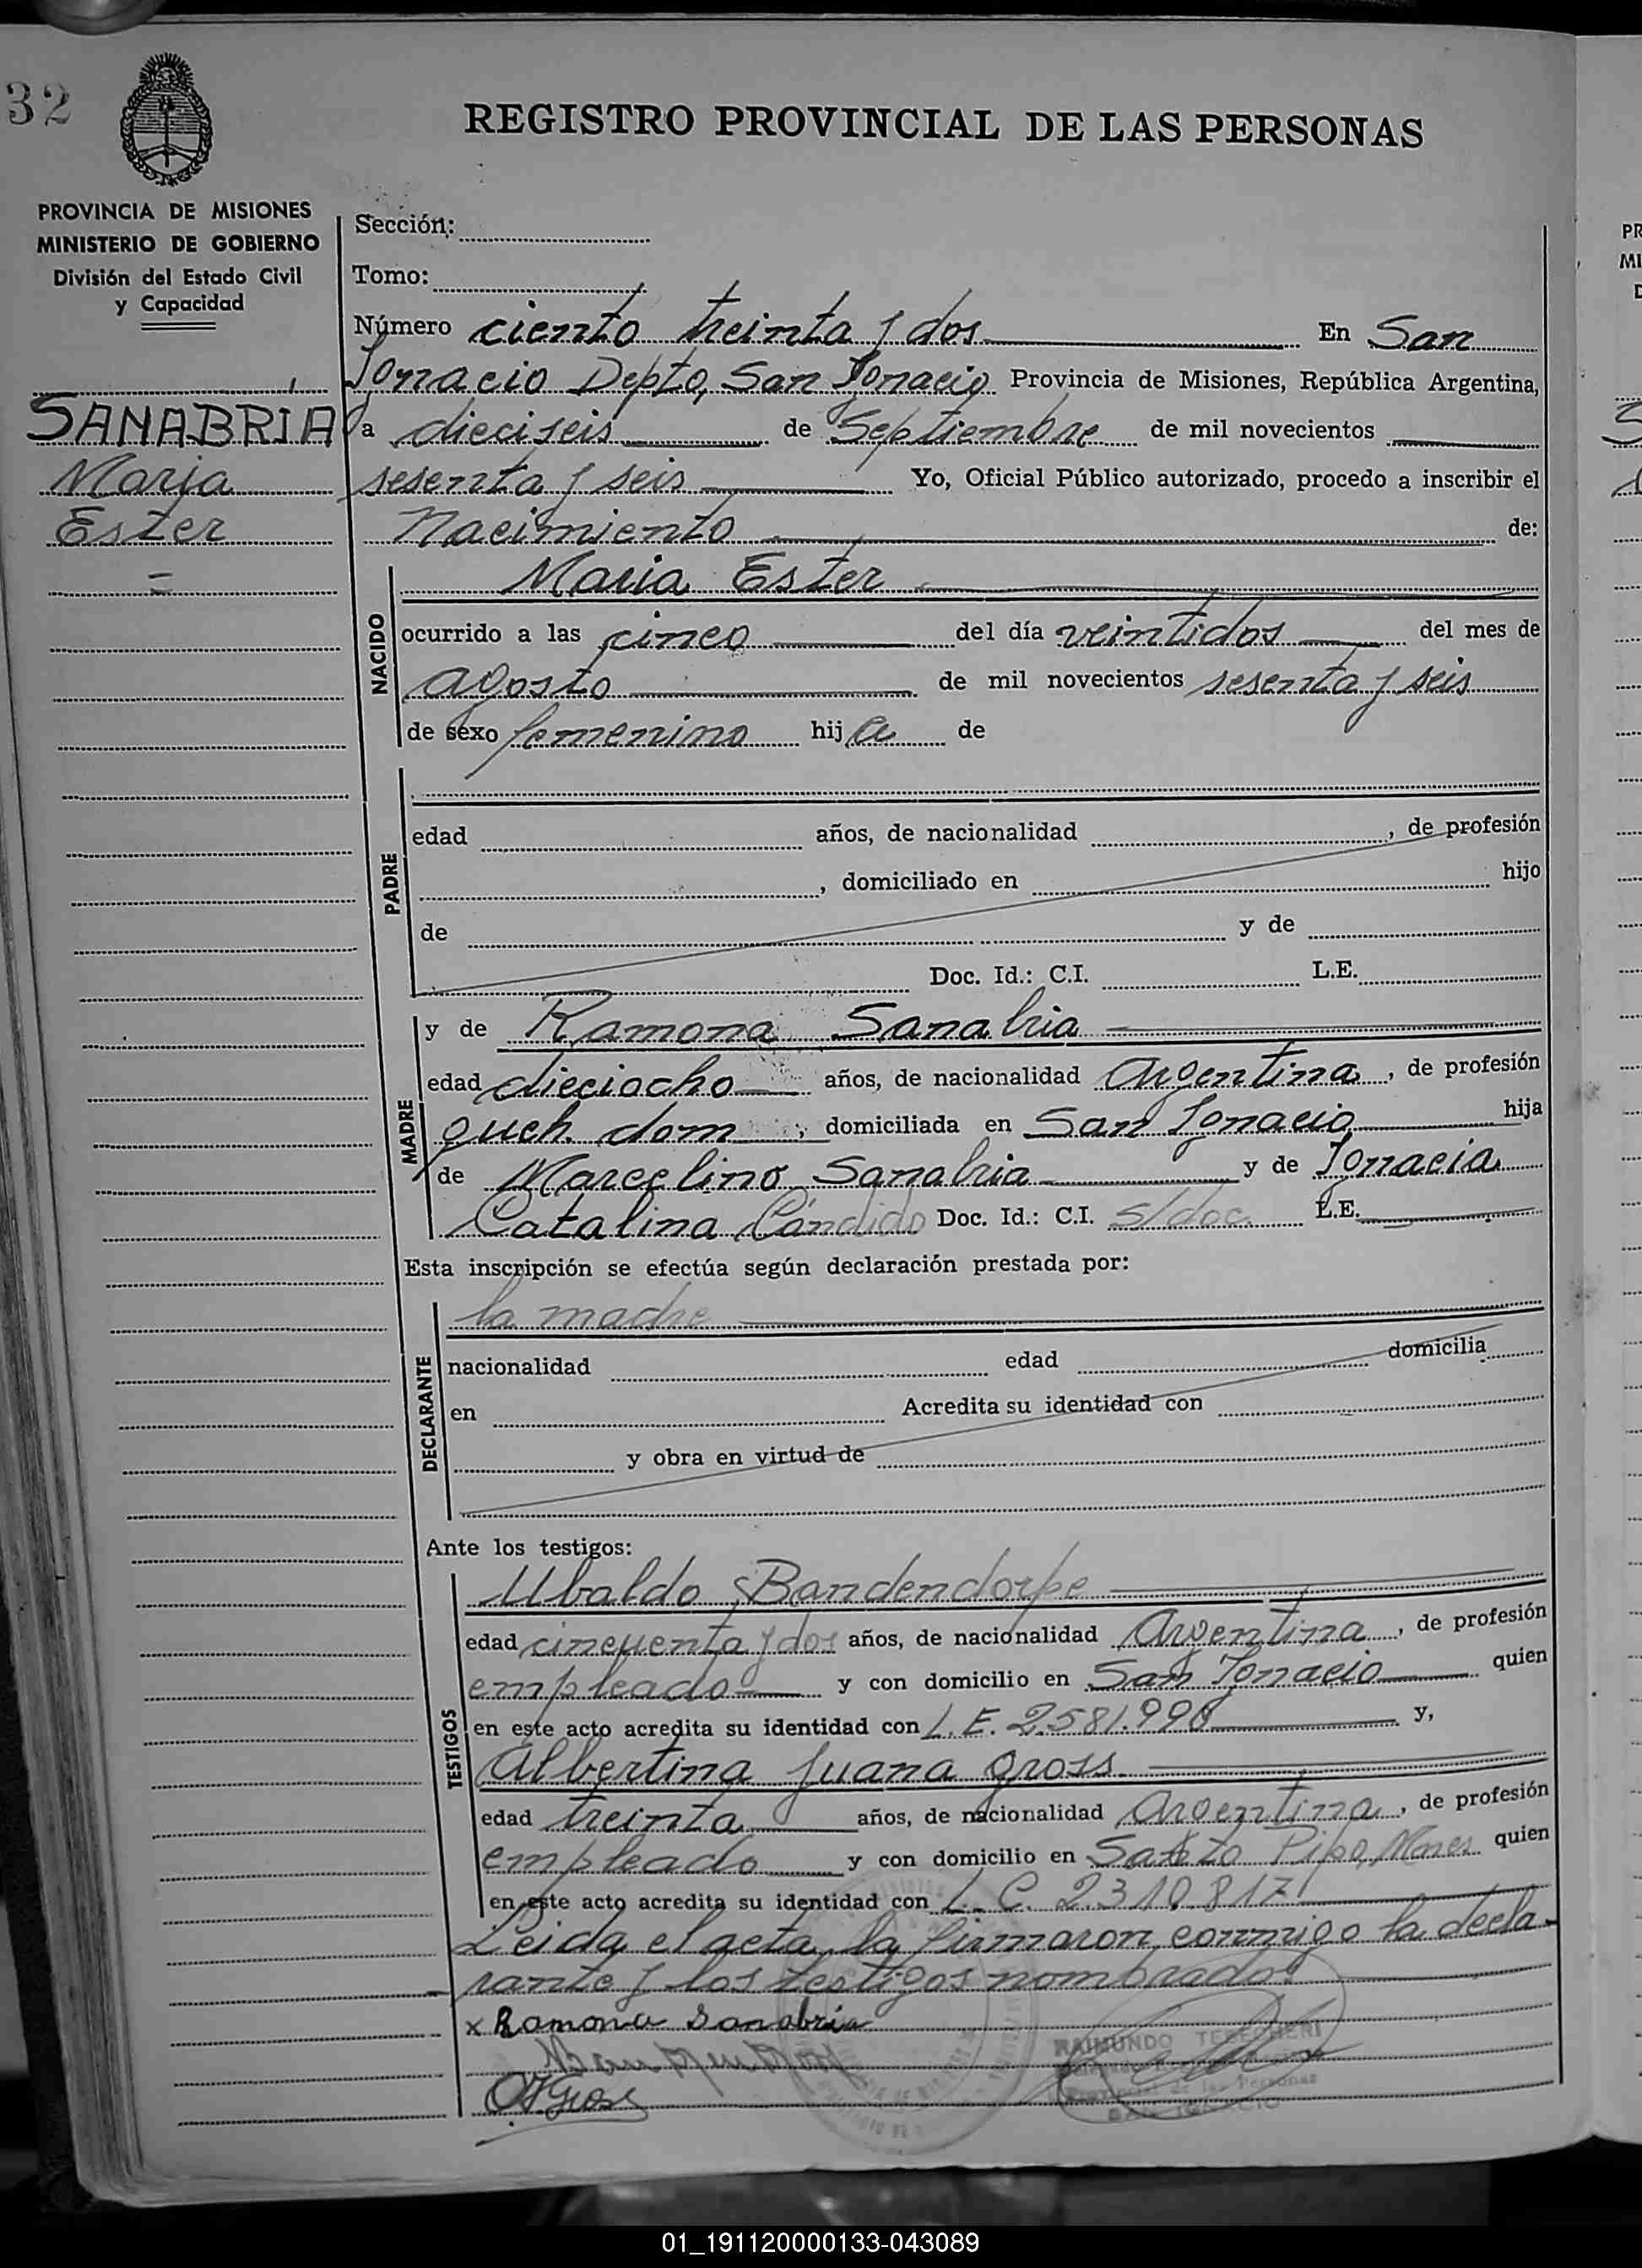 32
REGISTRO PROVINCIAL DE LAS PERSONAS
PROVINCIA DE MISIONES
MINISTERIO DE GOBIERNO
División del Estado Civil
y Capacidad
SANABRIA
Maria
Ester
Sección:
Tomo:
Número ciento treinta y dos En San
Ignacio Depto, San Ignacio Provincia de Misiones, República Argentina,
a dieciseis de Septiembre de mil novecientos
sesenta y seis Yo, Oficial Público autorizado, procedo a inscribir el
Nacimiento de:
NACIDO
Maria Ester
ocurrido a las cinco del día veintidos del mes de
agosto de mil novecientos sesenta y seis
de sexo femenino hija de
PADRE
edad años, de nacionalidad , de profesión
, domiciliado en hijo
de y de
Doc. Id.: C.I. L.E.
MADRE
y de Ramona Sanabria
edad dieciocho años, de nacionalidad Argentina, de profesión
queh. dom , domiciliada en San Ignacio hija
de Marcelino Sanabria y de Ignacia
Catalina Cándido Doc. Id.: C.I. s/doc. L.E.
Esta inscripción se efectúa según declaración prestada por:
DECLARANTE
la madre
nacionalidad edad domicilia
en Acredita su identidad con
y obra en virtud de
Ante los testigos:
TESTIGOS
Ubaldo Bandendorpe
edad cincuenta y dos años, de nacionalidad Argentina, de profesión
empleado y con domicilio en San Ignacio quien
en este acto acredita su identidad con L.E. 2.581.998 y,
Albertina Juana Gross
edad treinta años, de nacionalidad Argentina, de profesión
empleado y con domicilio en Santo Pipo, Mnes quien
en este acto acredita su identidad con L.C. 2.310.817
Leida el acta, la firmaron conmigo la decla-
rante y los testigos nombrados
x Ramona Sanabria
RAIMUNDO
de las Personas
SAN IGNACIO
01_191120000133-043089